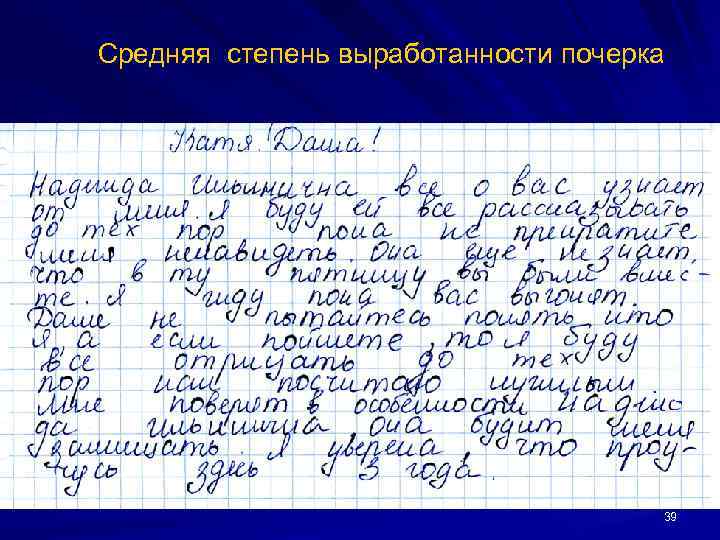 Средняя степень выработанности почерка
Катя! Даша!
Надмида Ильинична все о вас узнает
от меня. Я буду ей все рассказывать
до тех пор пока не прекратите
меня ненавидеть. Она еще не знает,
что в ту пятницу вы были вмес-
те. Я жду пока вас выгонят.
Даже не пытайтесь понять кто
я, а если поймете, то я буду
все отрицать до тех
пор как посчитаю нужным.
Мне поверят в особенности Надми
да Ильинична, она будит меня
защищать. Я уверена, что проу-
чусь здесь 3 года.
39